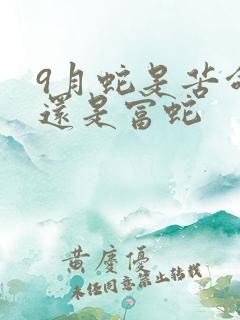 9月蛇是苦命
還是富蛇
黄慶優
未任同意禁止转载